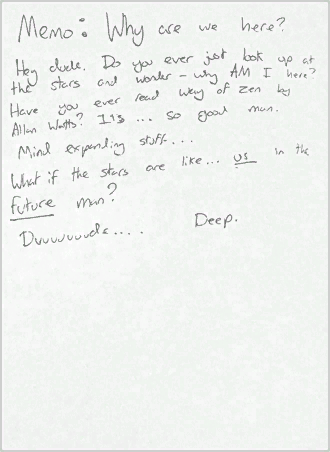 Memo: Why are we here?
Hey dude. Do you ever just look up at
the stars and wonder - why AM I here?
Have you ever read Way of Zen by
Allan Watts? It's... so good man.
Mind expanding stuff....
What if the stars are like... us in the
future man?
Duuuuuuude.... Deep.